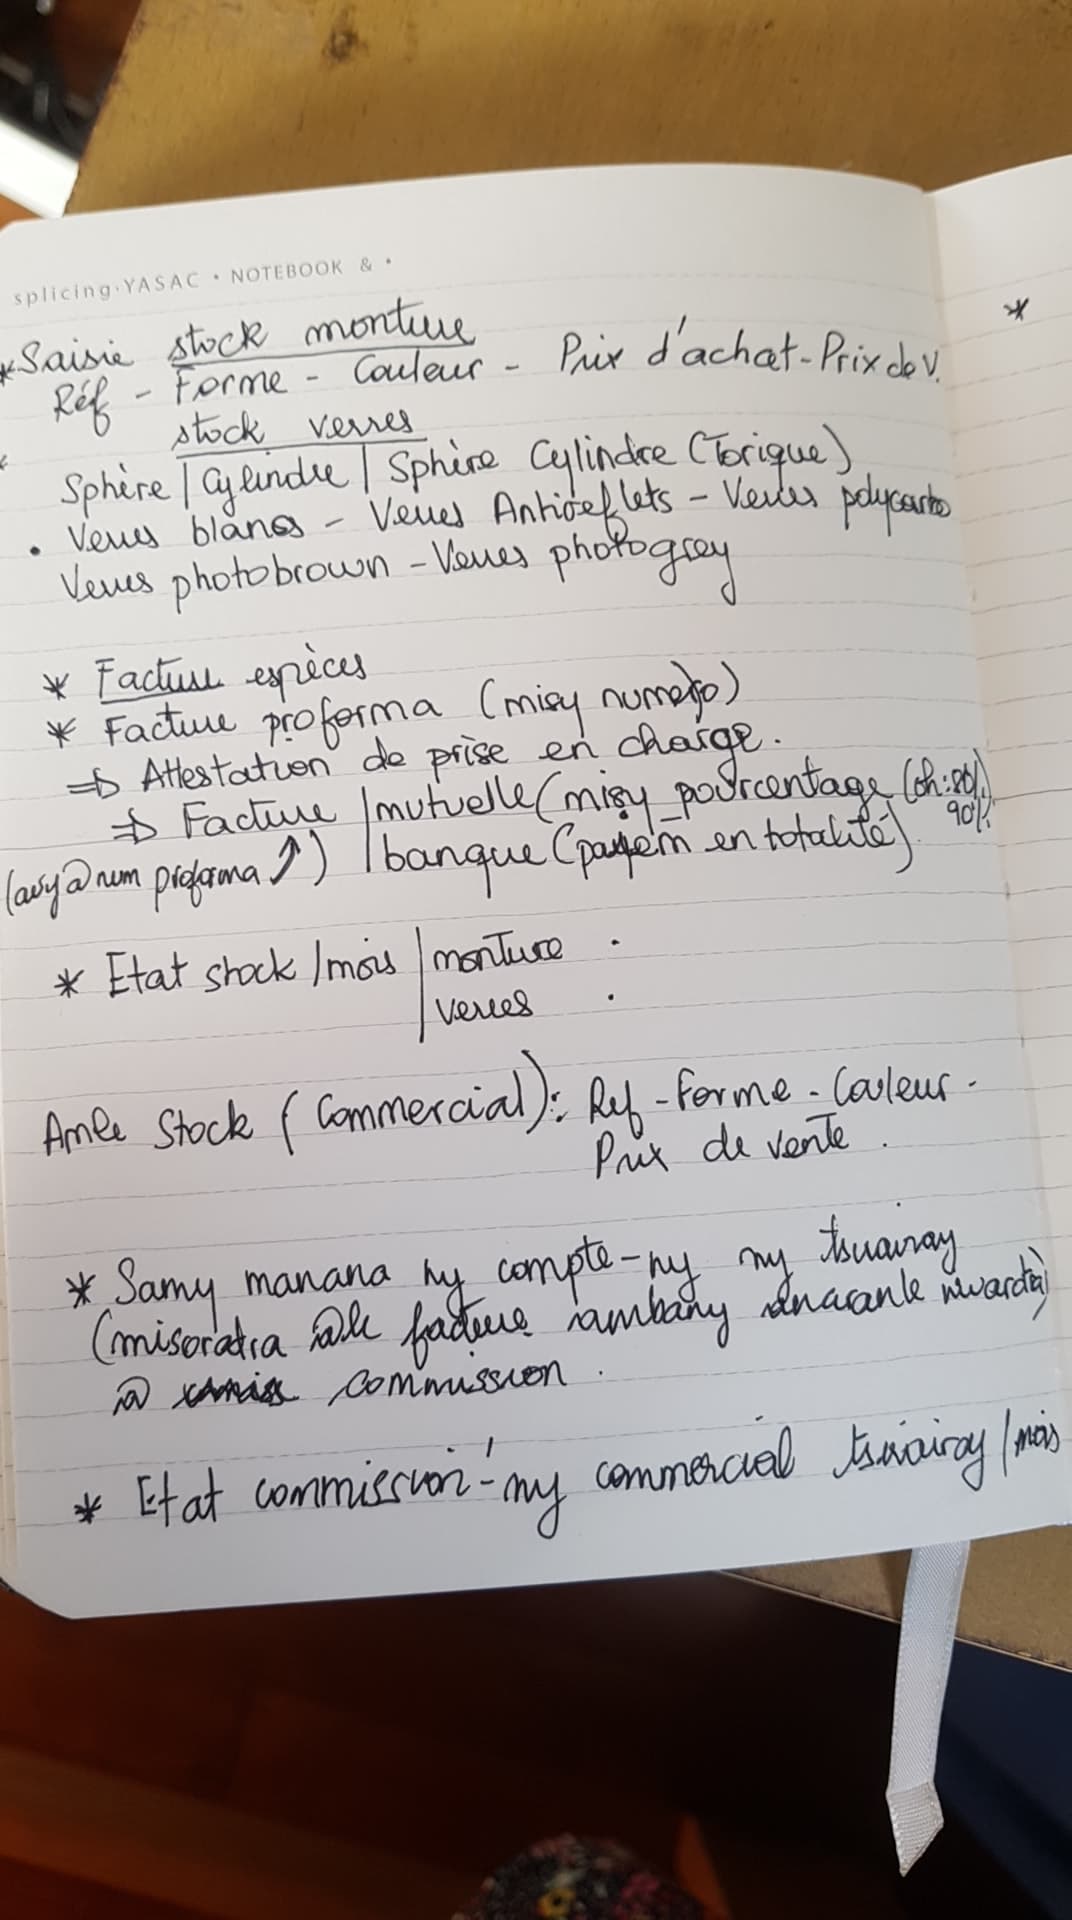 splicing·YASAC • NOTEBOOK & •
* Saisie stock monture
Réf - Forme - Couleur - Prix d'achat - Prix de V.
stock verres
Sphère | Cylindre | Sphère Cylindre (Torique)
• Verres blancs - Verres Antireflets - Verres polycarbo
Verres photobrown - Verres photogrey
* Facture espèces
* Facture proforma (misy numero)
⇒ Attestation de prise en charge.
⇒ Facture | mutuelle (misy pourcentage (oh: 80%, 90%)
(avy @ num proforma ⤴) | banque (payem en totalité)
* Etat stock / mois | monture .
| verres .
Amle Stock (Commercial): Ref - Forme - Couleur -
Prix de vente .
* Samy manana ny compte-ny ny tsirairay
(misoratra @le facture ambany anaranle
@ commission .
* Etat commission-ny commercial tsirairay / mois
*